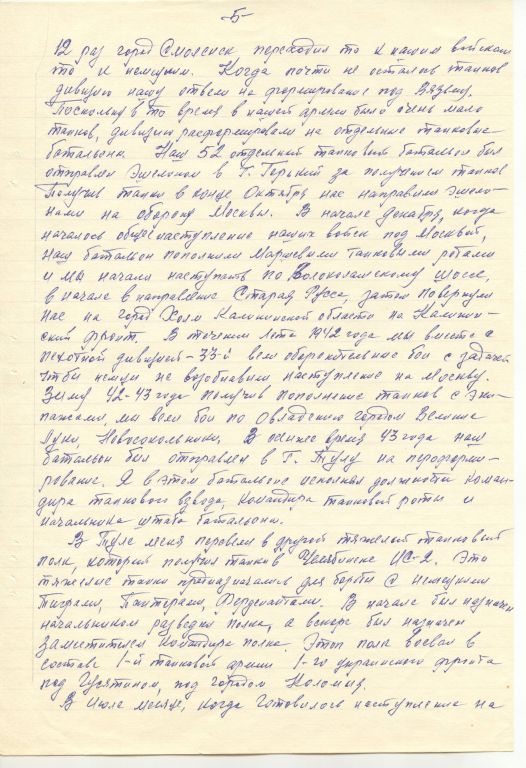 -5-
12 раз город Смоленск переходил то к нашим войскам
то к немецким. Когда почти не осталось танков
дивизию нашу отвели на формирование под Вязьму.
Поскольку в то время в нашей армии было очень мало
танков, дивизию расформировали на отдельные танковые
батальоны. Наш 52 отдельный танковый батальон был
отправлен эшелоном в г. Горький за получением танков
Получив танки в конце Октября нас направили эшело-
нами на оборону Москвы. В начале декабря, когда
началось общее наступление наших войск под Москвой,
наш батальон пополнили маршевыми танковыми ротами
и мы начали наступать по Волоколамскому шоссе,
в начале в направление Старая Русса, затем повернули
нас на город Холм Калининской области на Калинин-
ский фронт. В течении лета 1942 года мы вместе с
пехотной дивизией-33-й вели оборонительные бои с задачей
чтобы немцы не возобновили наступление на Москву.
Зиму 42-43 года получив пополнение танков с эки-
пажами, мы вели бои по Овладению городом Великие
Луки, Новосокольники. В осеннее время 43 года наш
батальон был отправлен в г. Тулу на переформи-
рование. Я в этом батальоне исполнял должности коман-
дира танкового взвода, командира танковой роты и
начальника штаба батальона.
В Туле меня перевели в другой тяжелый танковый
полк, который получил танки в Челябинске ИС-2. Эти
тяжелые танки предназначались для борьбы с немецкими
Тиграми, Пантерами, Фердинантами. В начале был назначен
начальником разведки полка, а вскоре был назначен
заместителем командира полка. Этот полк воевал в
составе 1-й танковой армии 1-го украинского фронта
под Гусятином, под городом Коломыя.
В Июле месяце, когда готовилось наступление на